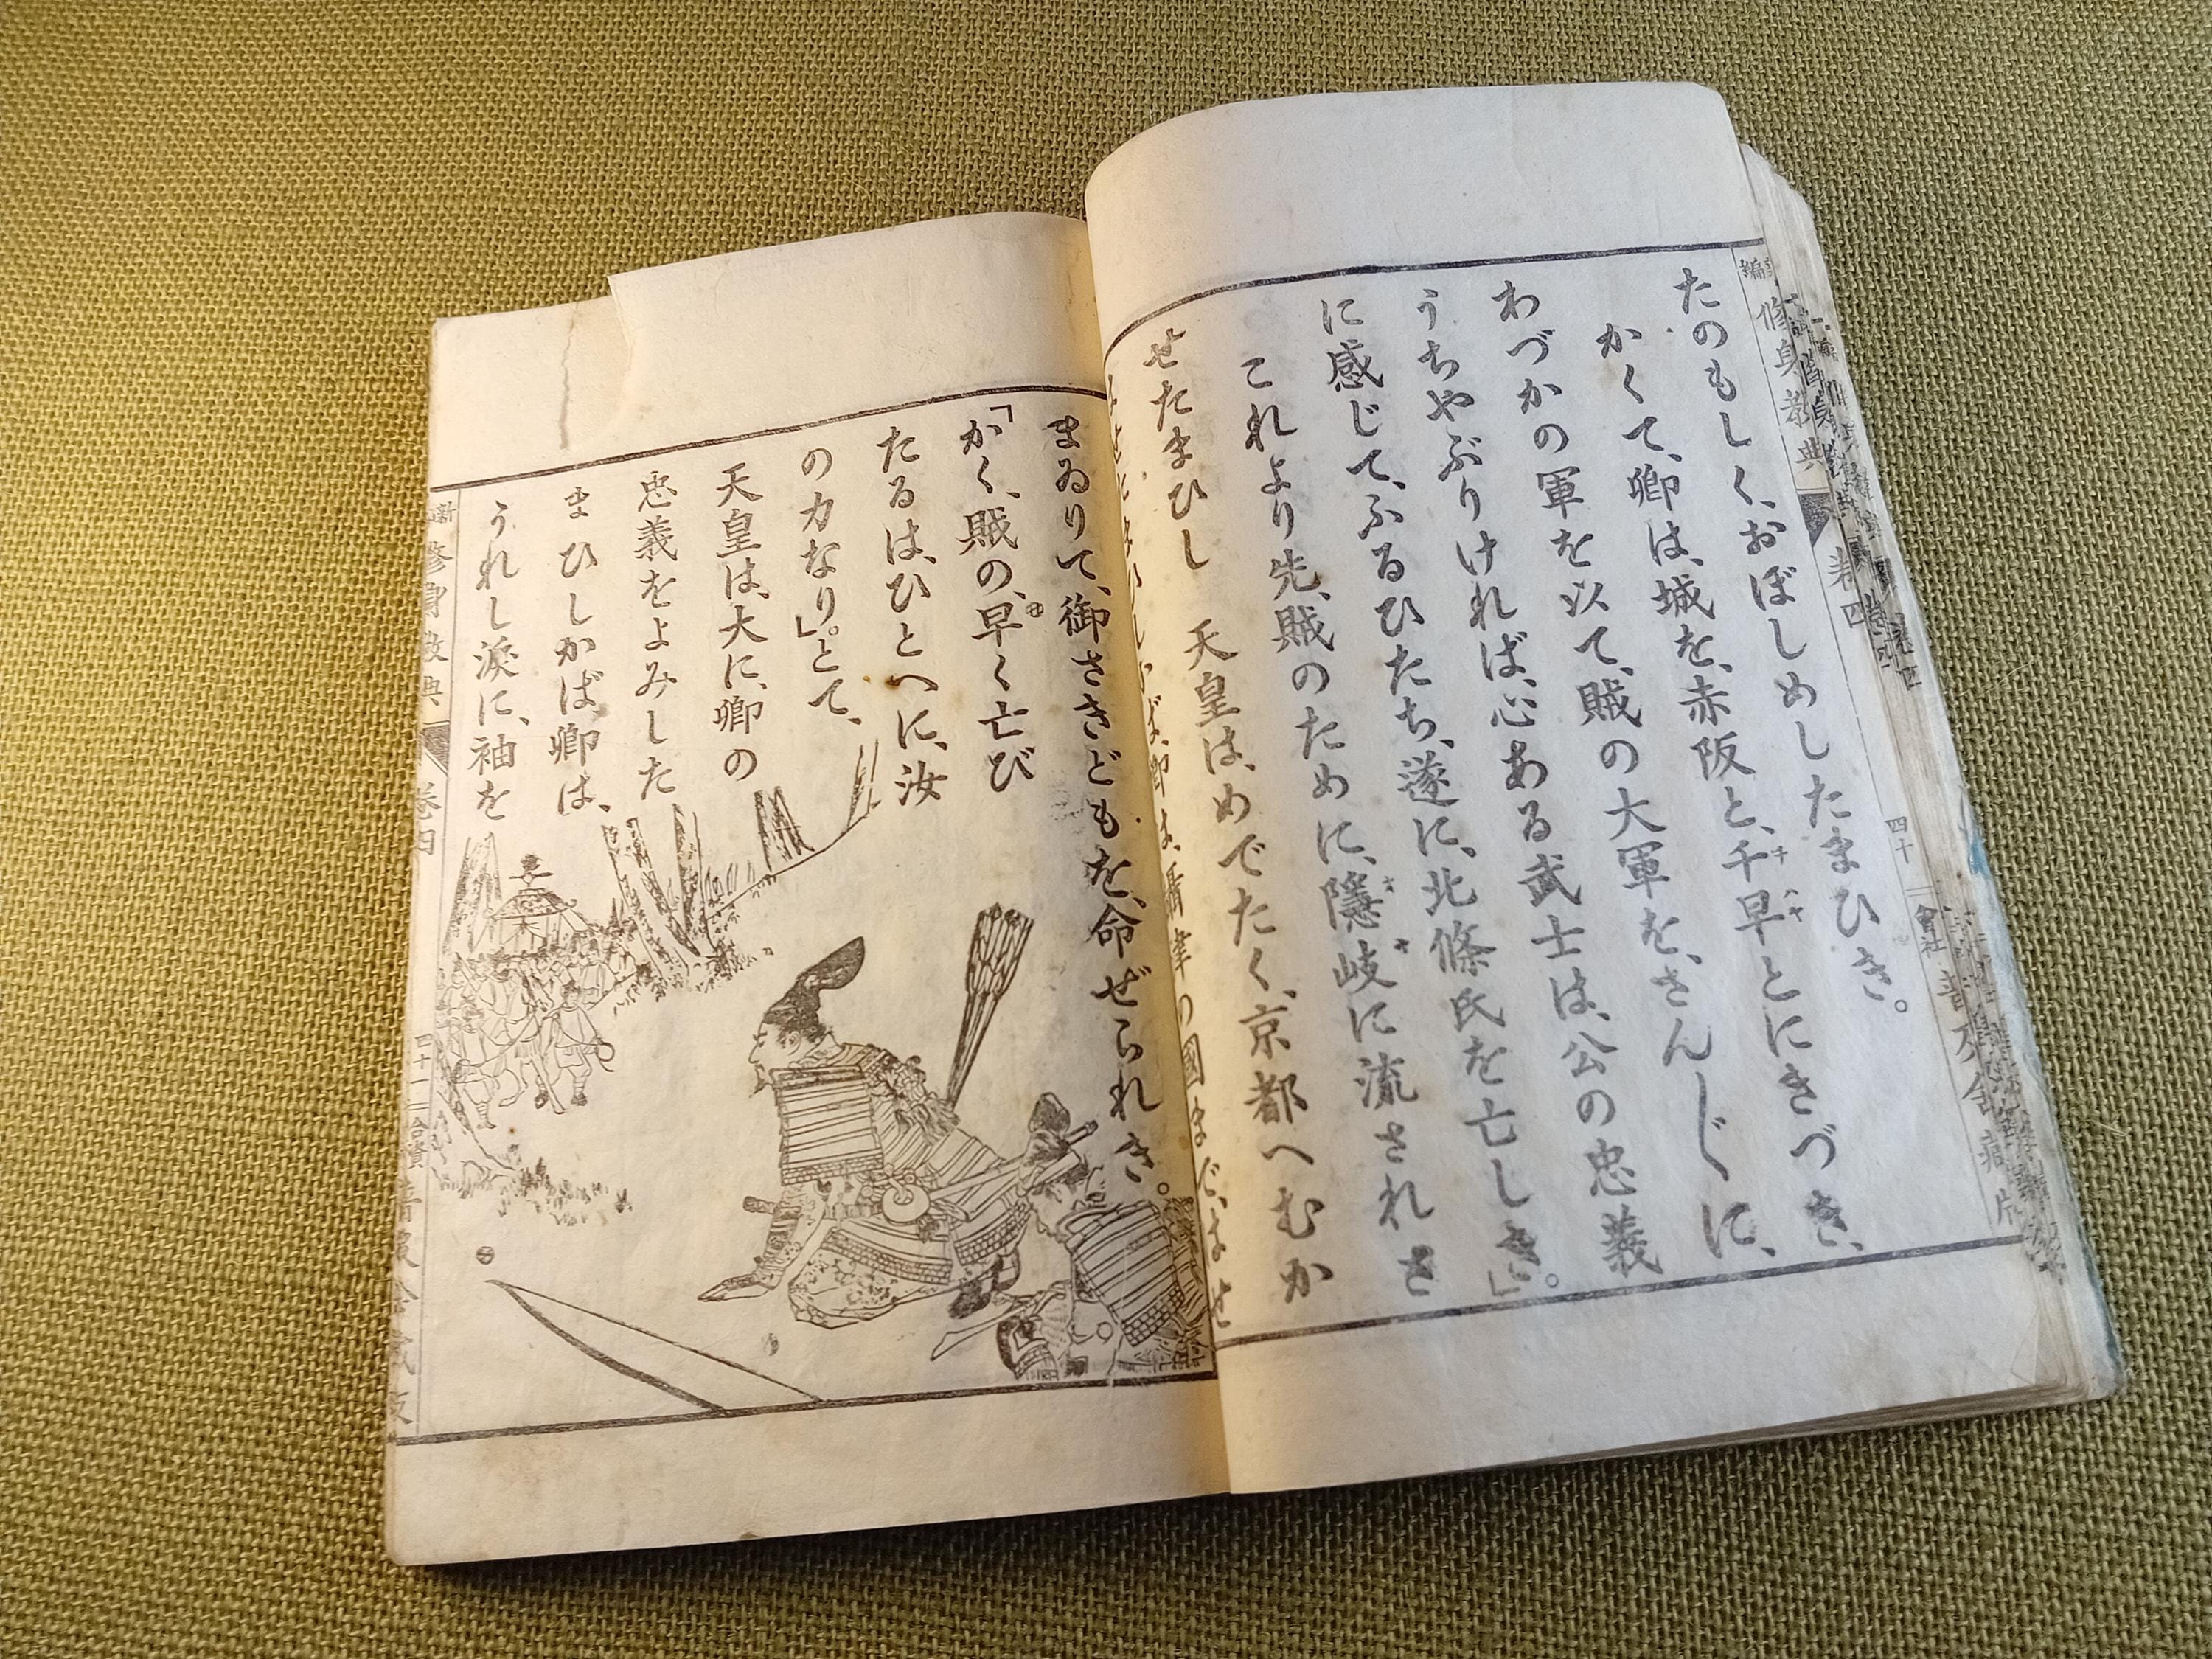 修身教典
卷四
四十
會社
たのもしく、おぼしめしたまひき。
かくて、卿は、城を、赤阪と、千早とにきづき、
わづかの軍を以て、賊の大軍を、さんじに、
うちやぶりければ、心ある武士は、公の忠義
に感じて、ふるひたち、遂に、北條氏を亡しき」。
これより先、賊のために、隱岐に流されさ
せたまひし 天皇は、めでたく、京都へむか
まゐりて、御さきどもを、命ぜられき。
「かく、賊の、早く亡び
たるは、ひとへに、汝
の力なり」。とて、
天皇は、大に、卿の
忠義をよみした
まひしかば、卿は、
うれし淚に、袖を
修身教典
卷四
四十一